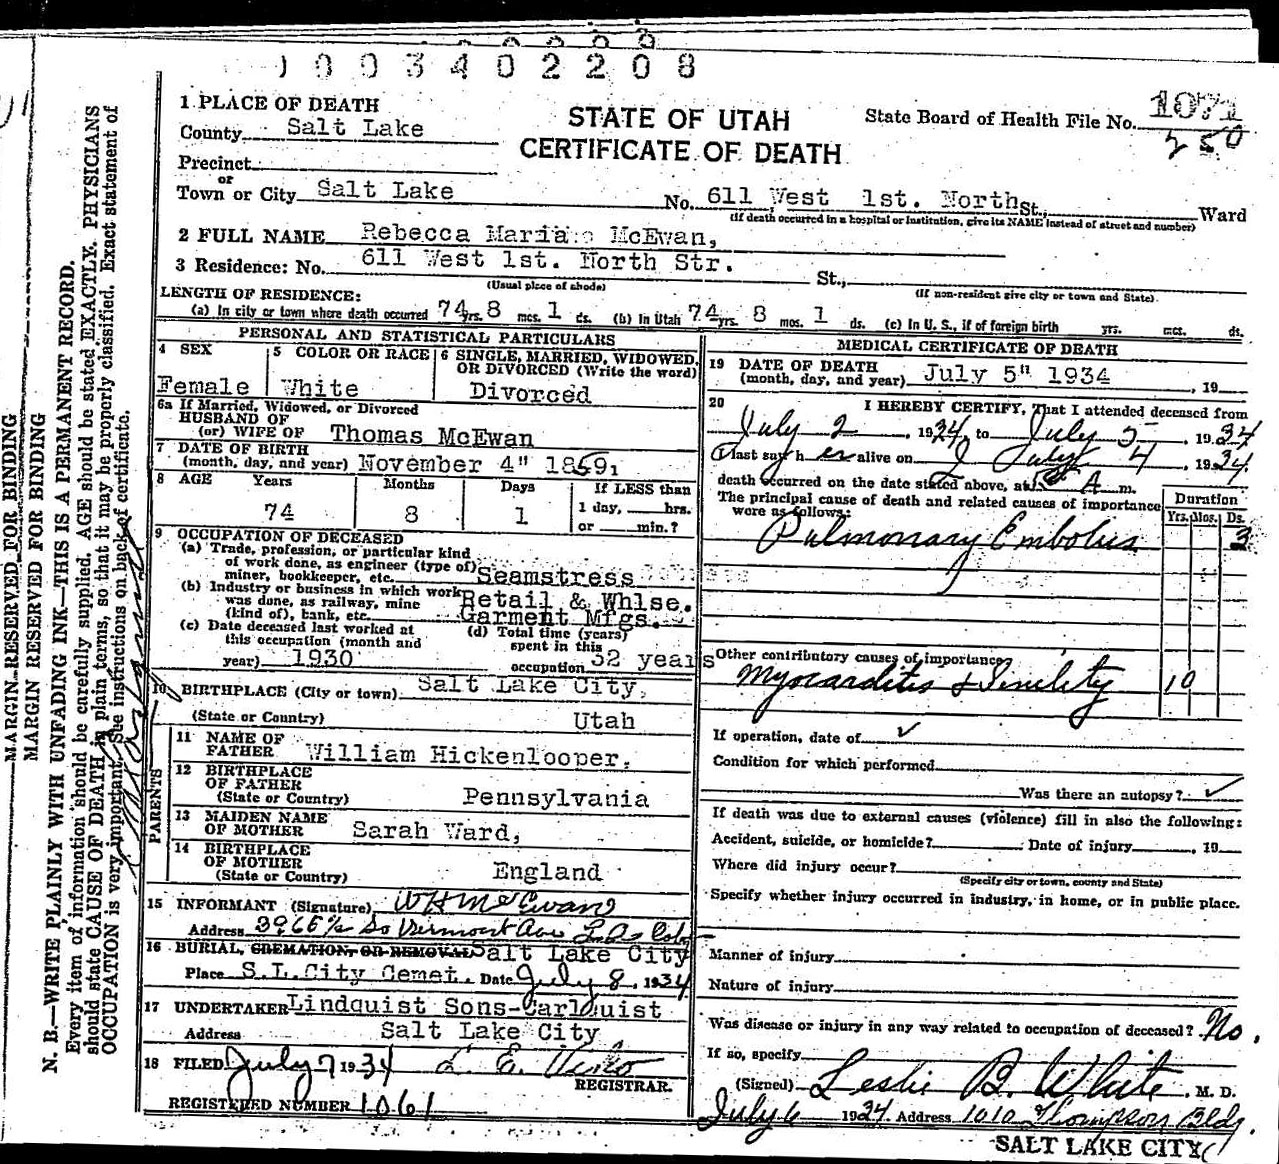 1003402208
1 PLACE OF DEATH
County Salt Lake
Precinct
or
Town or City Salt Lake
STATE OF UTAH
CERTIFICATE OF DEATH
State Board of Health File No. 1071
250
No. 611 West 1st. North St., Ward
(If death occurred in a hospital or institution, give its NAME instead of street and number)
2 FULL NAME Rebecca McEwan,
3 Residence: No. 611 West 1st. North Str. St.,
(Usual place of abode) (If non-resident give city or town and State)
LENGTH OF RESIDENCE:
(a) In city or town where death occurred 74 yrs. 8 mos. 1 ds. (b) In Utah 74 yrs. 8 mos. 1 ds. (c) In U. S., if of foreign birth yrs. mos. ds.
PERSONAL AND STATISTICAL PARTICULARS
4 SEX
Female
5 COLOR OR RACE
White
6 SINGLE, MARRIED, WIDOWED, OR DIVORCED (Write the word)
Divorced
6a If Married, Widowed, or Divorced
HUSBAND OF
(or) WIFE OF Thomas McEwan
7 DATE OF BIRTH
(month, day, and year) November 4" 1859,
8 AGE Years Months Days If LESS than
74 8 1 1 day, hrs.
or min.?
9 OCCUPATION OF DECEASED
(a) Trade, profession, or particular kind
of work done, as engineer (type of)
miner, bookkeeper, etc. Seamstress
(b) Industry or business in which work
was done, as railway, mine
(kind of), bank, etc. Retail & Whlse.
Garment Mfgs.
(c) Date deceased last worked at
this occupation (month and
year) 1930
(d) Total time (years)
spent in this
occupation 52 years
10 BIRTHPLACE (City or town) Salt Lake City,
(State or Country) Utah
PARENTS
11 NAME OF
FATHER William Hickenlooper,
12 BIRTHPLACE
OF FATHER
(State or Country) Pennsylvania
13 MAIDEN NAME
OF MOTHER Sarah Ward,
14 BIRTHPLACE
OF MOTHER
(State or Country) England
15 INFORMANT (Signature) W H McEwan
Address 3966½ So Vermont Ave
16 BURIAL, CREMATION, OR REMOVAL Salt Lake City
Place S.L.City Cemet. Date July 8, 1934
17 UNDERTAKER Lindquist Sons-Carlquist
Address Salt Lake City
18 FILED July 7 1934 L. E.
REGISTRAR.
REGISTERED NUMBER 1061
MEDICAL CERTIFICATE OF DEATH
19 DATE OF DEATH
(month, day, and year) July 5" 1934, 19
20 I HEREBY CERTIFY, That I attended deceased from
July 2, 1934, to July 5, 1934
I last saw her alive on July 4, 1934.
death occurred on the date stated above, at A m.
The principal cause of death and related causes of importance
were as follows:
Duration
Yrs. Mos. Ds.
Pulmonary Embolus 3
Other contributory causes of importance
Myocarditis & Senility 10
If operation, date of ✓
Condition for which performed
Was there an autopsy? ✓
If death was due to external causes (violence) fill in also the following:
Accident, suicide, or homicide? Date of injury , 19
Where did injury occur?
(Specify city or town, county and State)
Specify whether injury occurred in industry, in home, or in public place.
Manner of injury
Nature of injury
Was disease or injury in any way related to occupation of deceased? No.
If so, specify
(Signed) Leslie B. White, M. D.
July 6 1934 Address 1010 Thompson Bldg.
SALT LAKE CITY
MARGIN RESERVED FOR BINDING
MARGIN RESERVED FOR BINDING
N. B.—WRITE PLAINLY WITH UNFADING INK—THIS IS A PERMANENT RECORD.
Every item of information should be carefully supplied. AGE should be stated EXACTLY. PHYSICIANS
should state CAUSE OF DEATH in plain terms, so that it may be properly classified. Exact statement of
OCCUPATION is very important. See instructions on back of certificate.